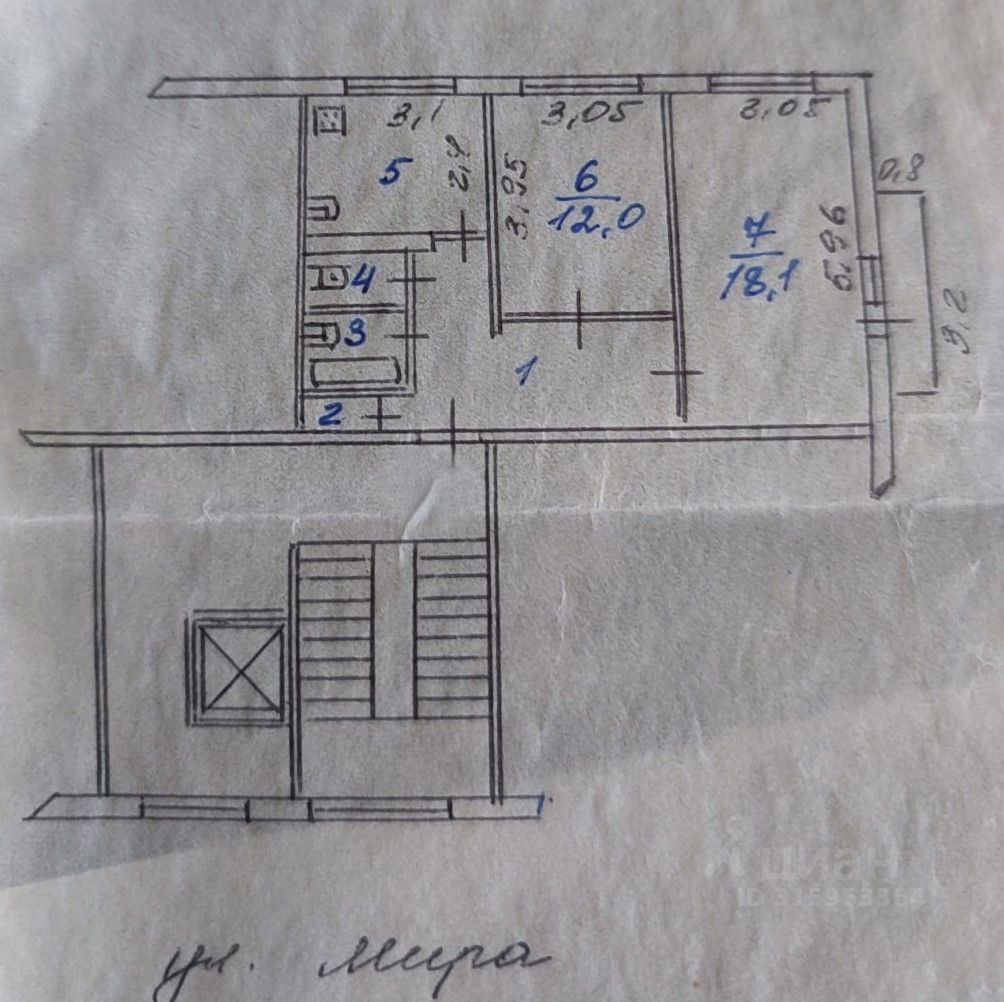 3,1
3,05
3,05
0,8
5
2,7
3,95
6
12,0
7
18,1
5,96
3,2
4
3
1
2
циан
ул. Мира